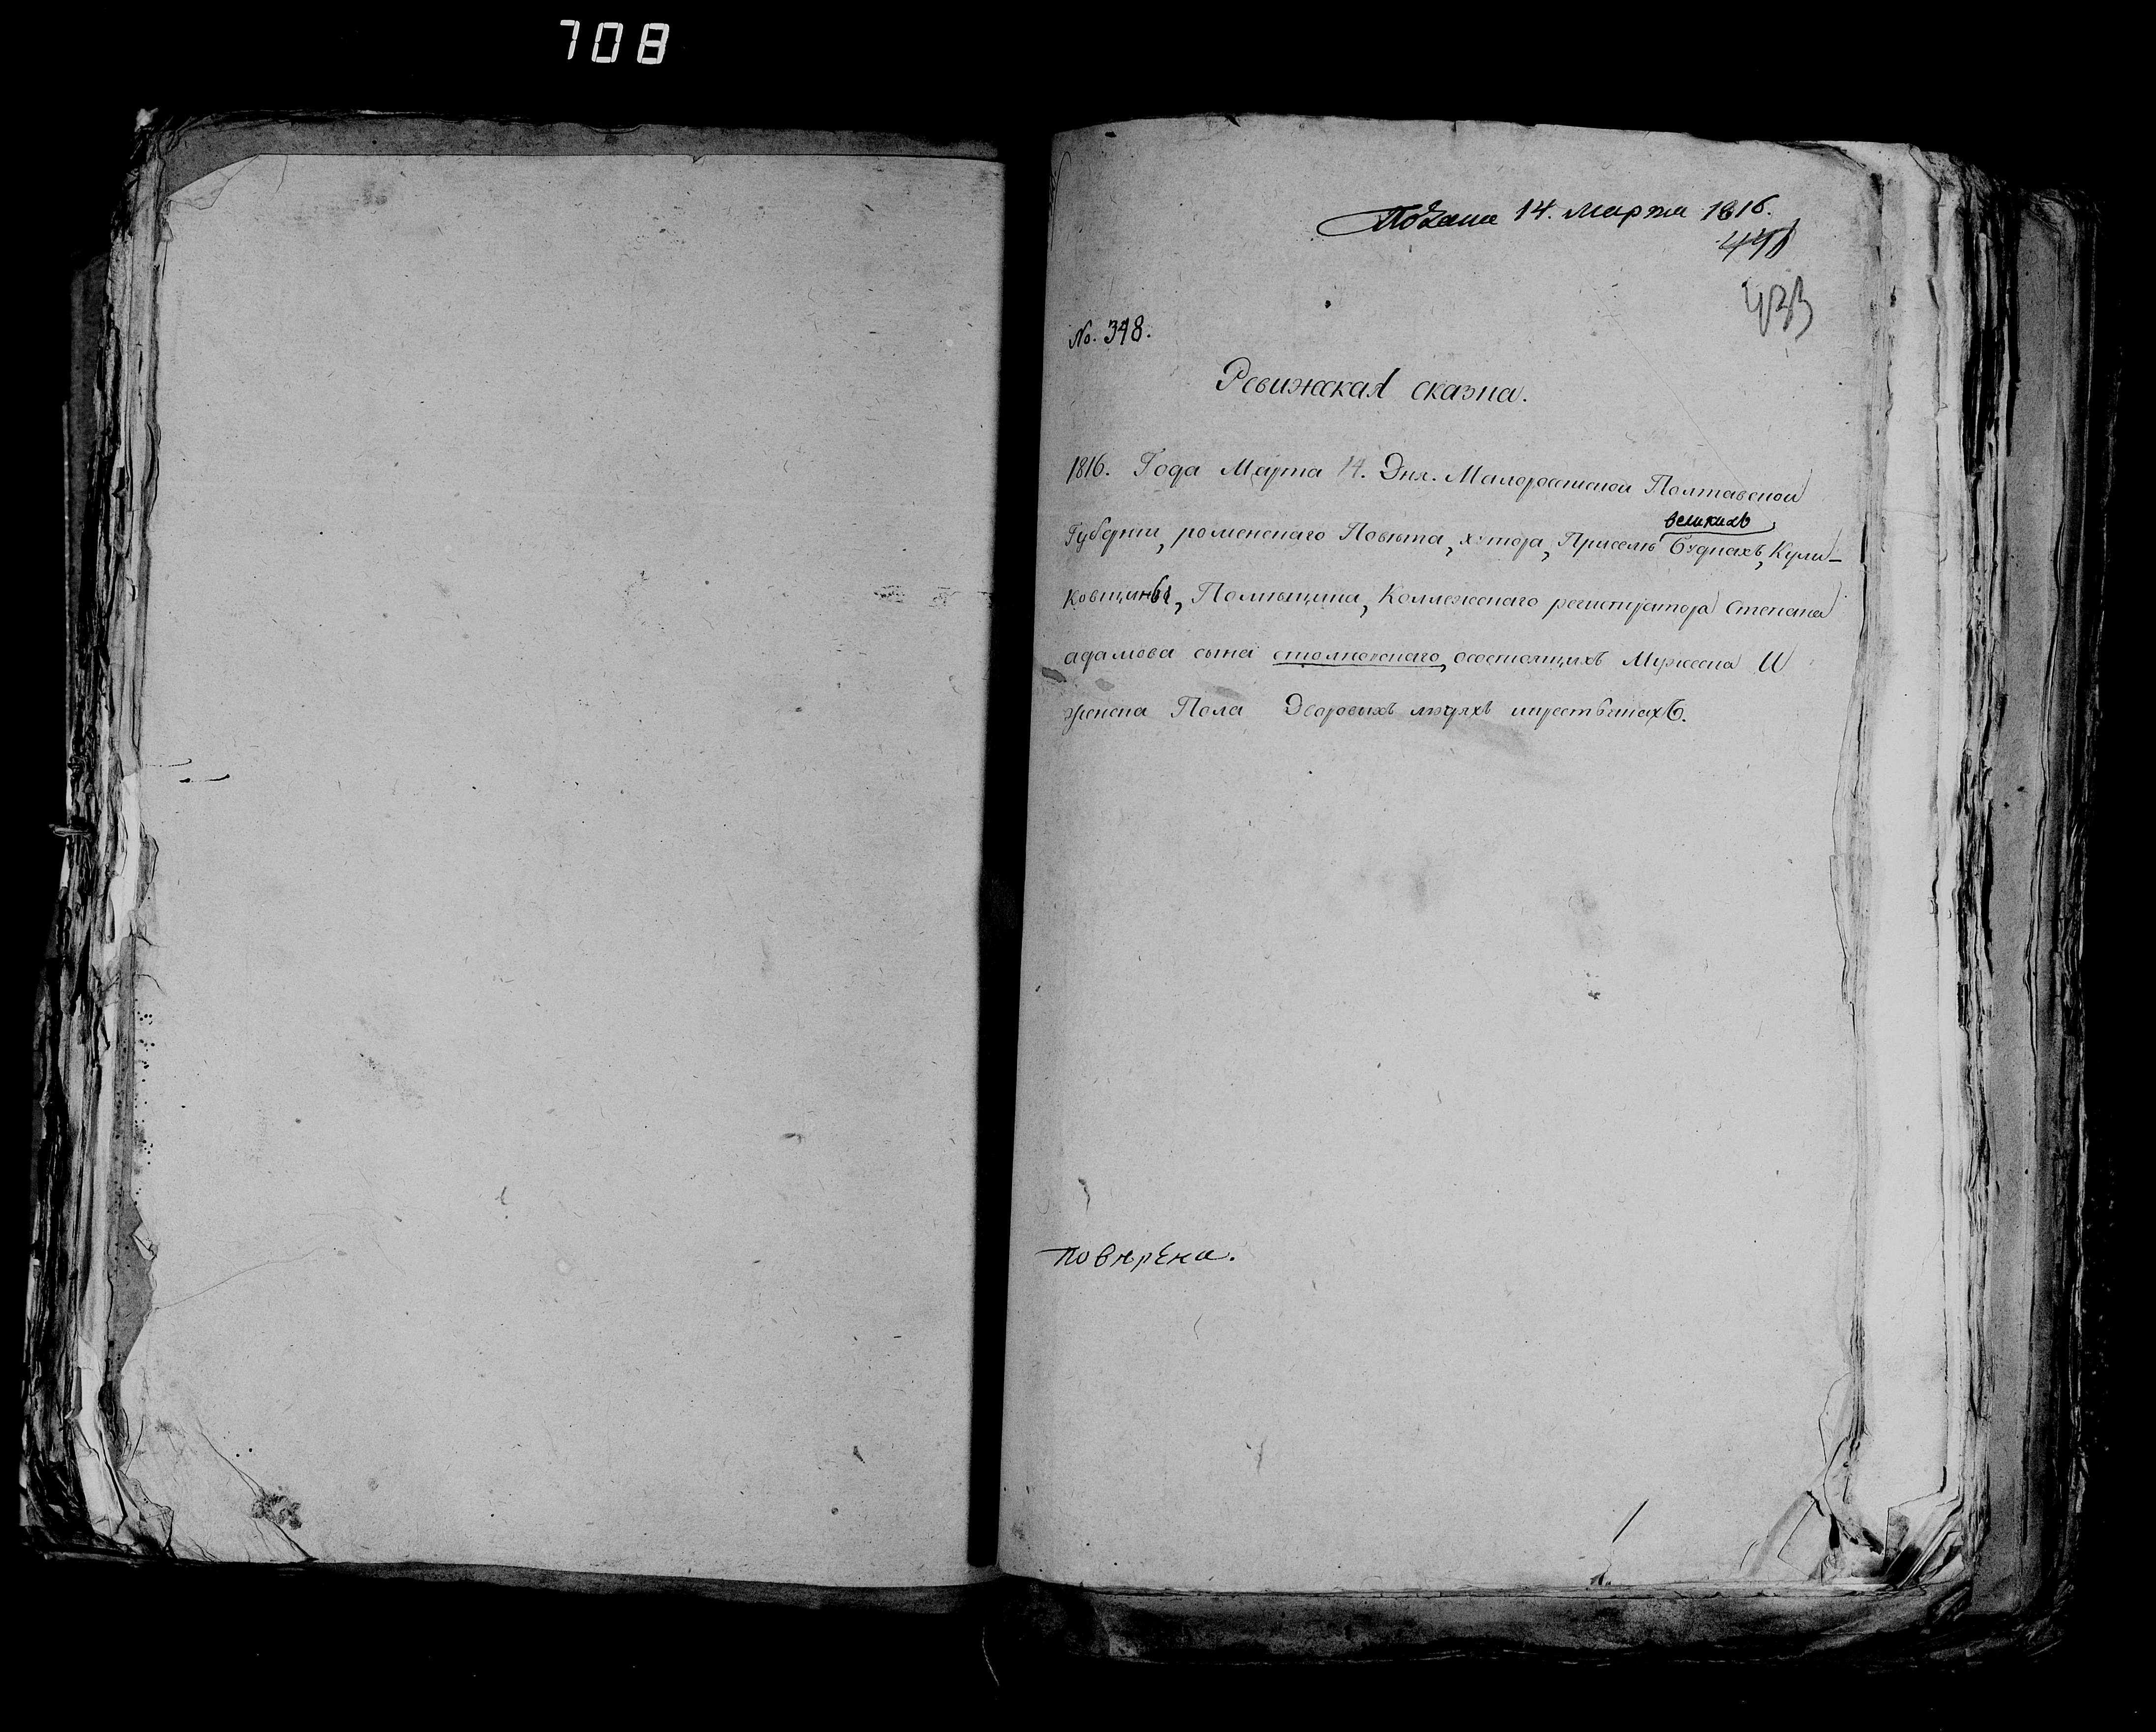 708
Подана 14. Марта 1816.
433
No. 348.
Ревижская сказка.
1816. Года Марта 14. Дня. Малороссійской Полтавской
великихъ
Губерніи, роменскаго Повѣта, хутора, При селѣ Будкахъ, Кули-
ковщины, Помѣщика, Коллежскаго регистратора Степана
адамова сына столповскаго, осостоящихъ Мужеска И
женска Пола Дворовыхъ людяхъ
повѣрена.